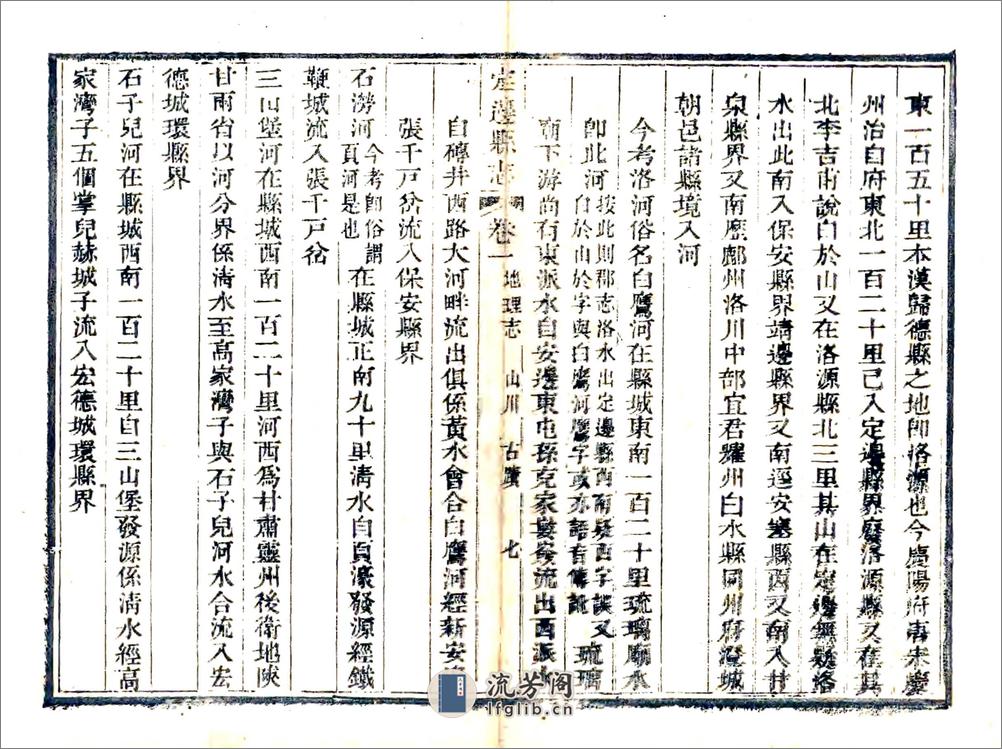 東一百五十里本漢歸德縣之地即洛源也今慶陽府唐宋慶
州治自府東北一百二十里已入定邊縣界廢洛源縣又在其
北李吉甫說白於山又在洛源縣北三里其山在定邊無疑洛
水出此南入保安縣界靖邊縣界又南逕安塞縣西又南入甘
泉縣界又南歷鄜州洛川中部宜君耀州白水縣同州府澄城
朝邑諸縣境入河
今考洛河俗名白鷹河在縣城東南一百二十里琉璃廟水
即此河按此則郡志洛水出定邊縣西南疑西字誤又
白於山於字與白鷹河鷹字或亦語音傳訛琉璃
廟下游尚有東派水自安邊東屯孫克家嶮流出西派水
定邊縣志 卷一 地理志 山川 古蹟 七
自磚井西路大河畔流出俱係黃水會合白鷹河經新安
張千戶岔流入保安縣界
石澇河今考即俗謂
頁河是也在縣城正南九十里清水自頁濠發源經鐵
鞭城流入張千戶岔
三山堡河在縣城西南一百二十里河西爲甘肅靈州後衛地陝
甘兩省以河分界係清水至高家灣子與石子兒河水合流入宏
德城環縣界
石子兒河在縣城西南一百二十里自三山堡發源係清水經高
家灣子五個掌兒赫城子流入宏德城環縣界
流芳阁
lfglib.cn